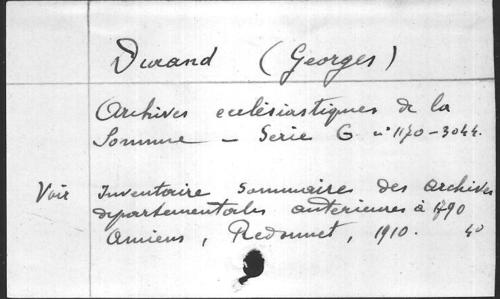 Durand (Georges)
Archives ecclésiastiques de la
Somme - Serie G n° 1170-3044.
Voir Inventaire Sommaire des archives
départementales antérieures à 1790
Amiens, Redonnet, 1910. 4°